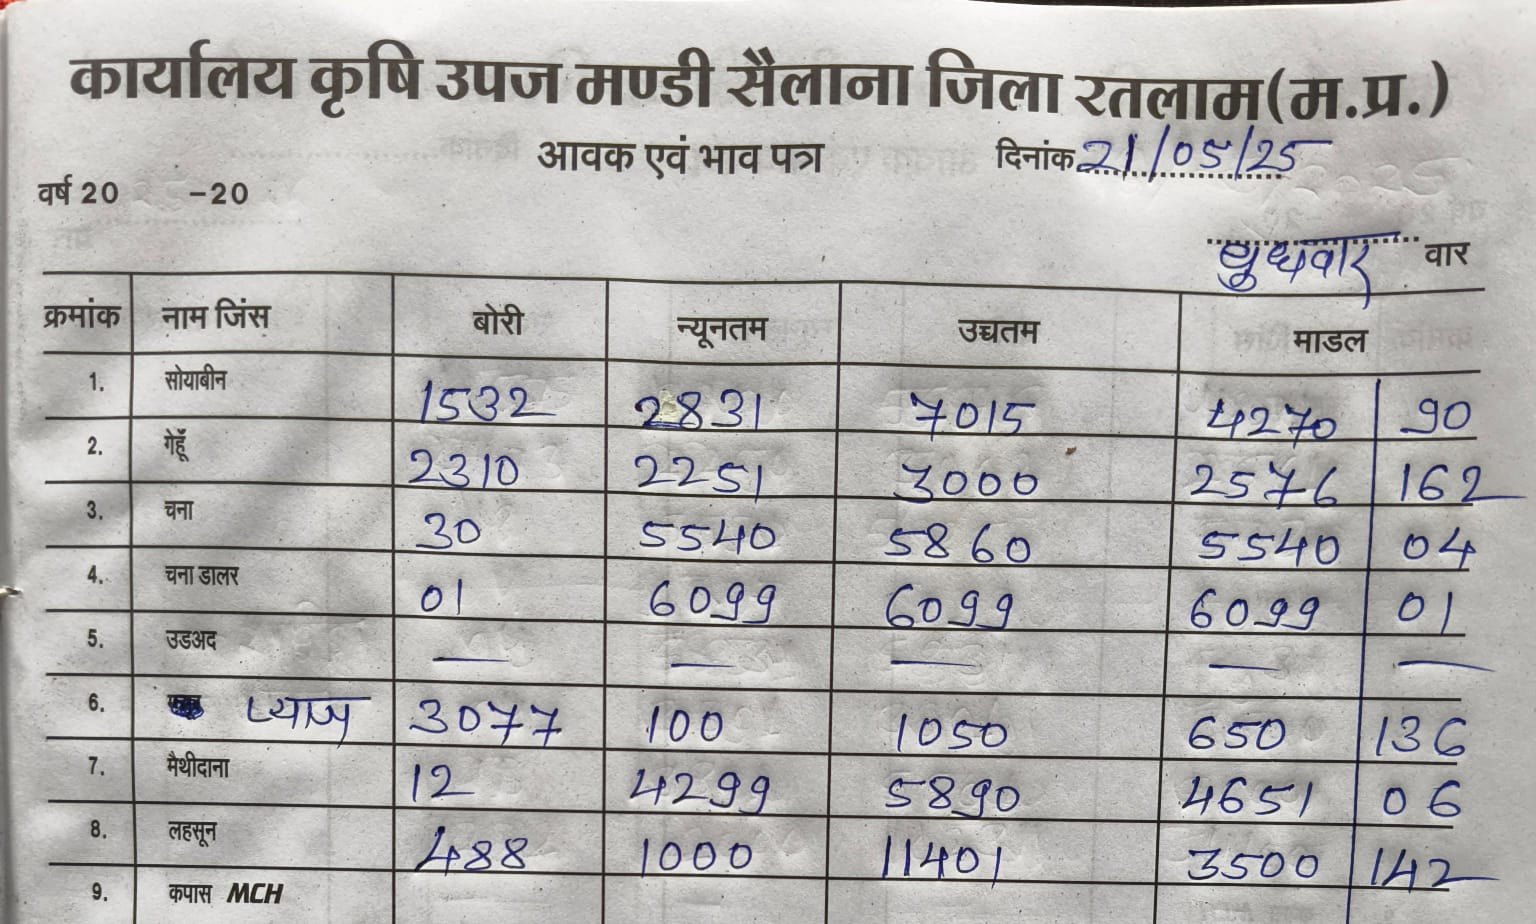 कार्यालय कृषि उपज मण्डी सैलाना जिला रतलाम(म.प्र.)
आवक एवं भाव पत्रा दिनांक 21/05/25
वर्ष 20 -20
बुधवार वार
क्रमांक नाम जिंस बोरी न्यूनतम उच्चतम माडल
1. सोयाबीन 1532 2831 7015 4270 90
2. गेहूँ 2310 2251 3000 2576 162
3. चना 30 5540 5860 5540 04
4. चना डालर 01 6099 6099 6099 01
5. उडअद — — — — —
6. प्याज 3077 100 1050 650 136
7. मैथीदाना 12 4299 5890 4651 06
8. लहसून 488 1000 11401 3500 142
9. कपास MCH